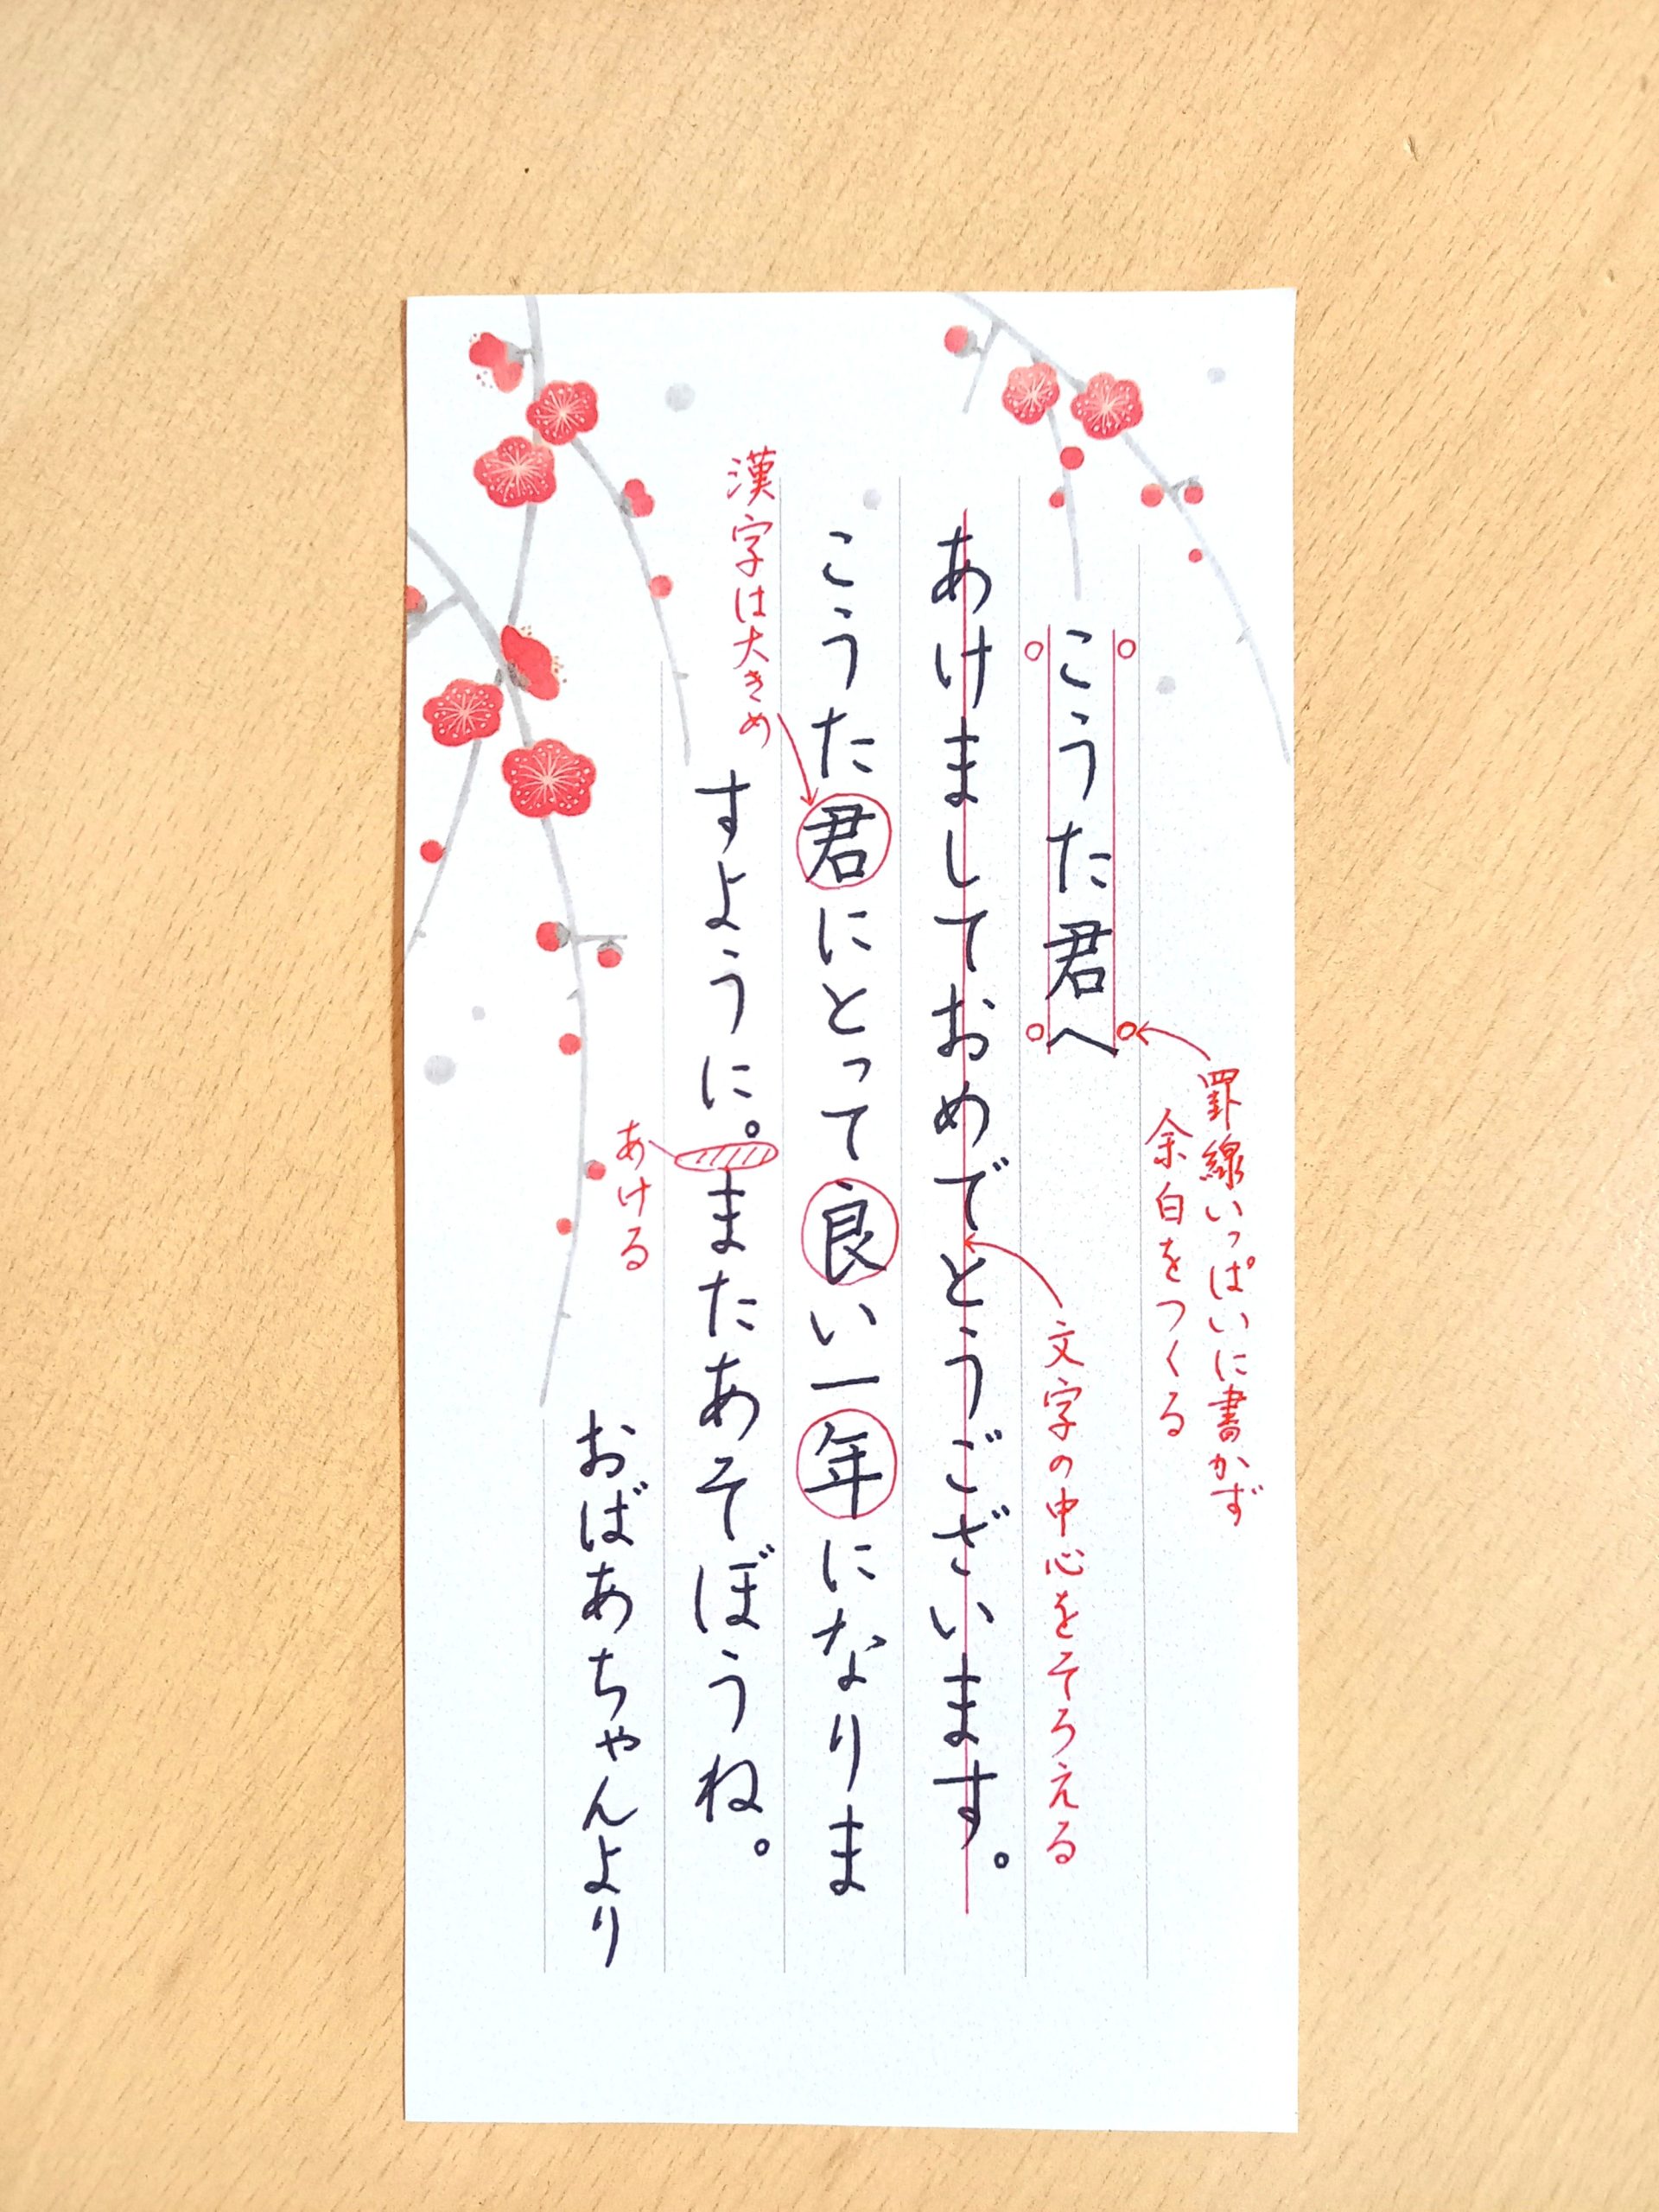 罫線いっぱいに書かず
余白をつくる
こうた君へ
文字の中心をそろえる
あけましておめでとうございます。
こうた君にとって良い一年になりま
漢字は大きめ
すように。またあそぼうね。
あける
おばあちゃんより